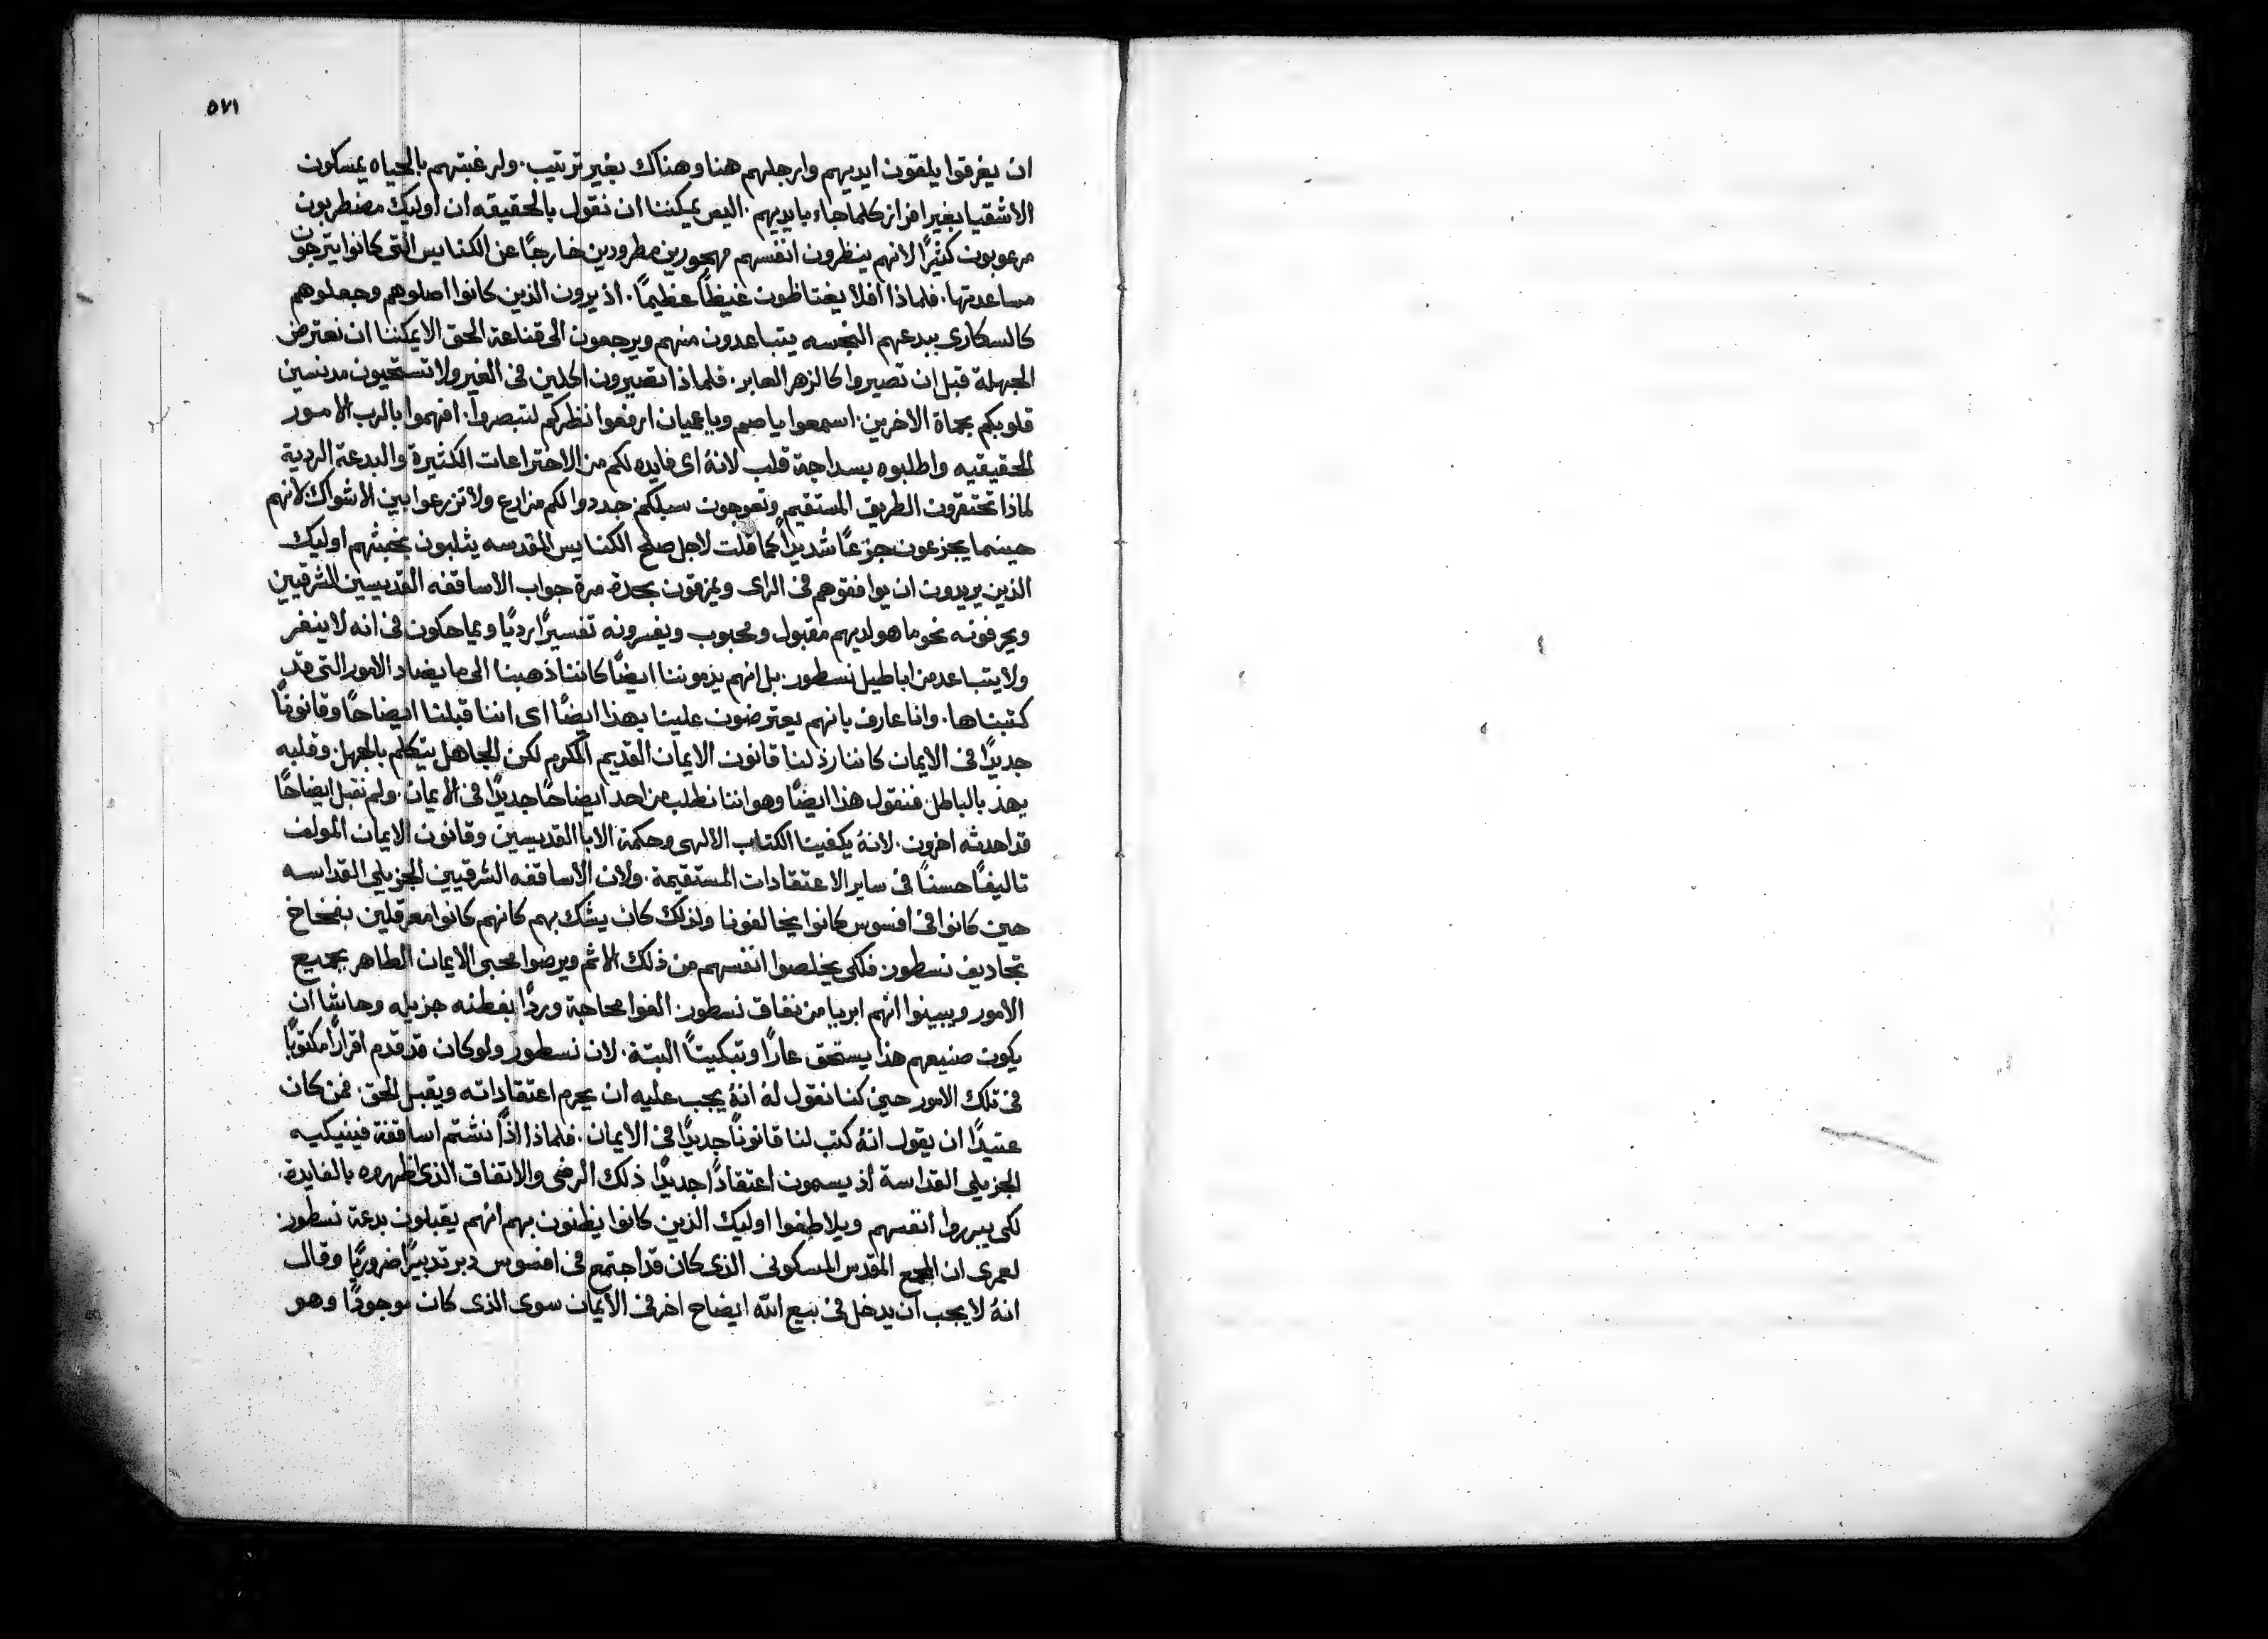 ٥٧١
ان يغرقوا يلقون ايديهم وارجلهم هنا وهناك بغير ترتيب. ولرغبتهم بالحياه يمسكون
الاشقيا بغير افراز كلما جاء بايديهم. اليس يمكننا ان نقول بالحقيقه ان اوليك مضطربون
مرعوبون كثيرًا لانهم ينظرون انفسهم مهجورين مطرودين خارجًا عن الكنايس التي كانوا يترجون
مساعدتها. فلماذا افلا يغتاظون غيظًا عظيمًا. اذ يرون الذين كانوا اضلوهم وجعلوهم
كالسكارى ببدعهم النجسه يتباعدون منهم ويرجعون الى قناعة الحق الا يمكننا ان نعترض
الجهلة قبل ان تصيروا كالزهر العابر. فلماذا تصيرون اكلين في الغير ولا تستحيون مدنسين
قلوبكم بحماة الاخرين. اسمعوا يا صم ويا عميان ارفعوا نظركم لتبصروا. افهموا بالرب الامور
الحقيقيه واطلبوه بسداجة قلب لانهُ اى فايده لكم من الاختراعات الكثيرة والبدعة الردية
لماذا تحتقرون الطريق المستقيم وتعوجون سبلكم جددوا لكم مزارع ولا تزرعوا بين الاشواك لانهم
حينما يجزعون جزعًا شديدًا كما قلت لاجل صلح الكنايس المقدسه يثلبون بخبثهم اوليك
الذين يريدون ان يوافقوهم في الراى ويمزقون بحدة مرة جواب الاساقفه القديسين الشرقيين
ويحرفونه نحو ما هو لديهم مقبول ومحبوب ويفسرونه تفسيرًا رديًا ويماحكون في انه لا ينفر
ولا يتباعد من اباطيل نسطور. بل انهم يذموننا ايضًا كاننا ذهبنا الى ما يضاد الامور التي قد
كتبناها. وانا عارف بانهم يعترضون علينا بهذا ايضًا اى اننا قبلنا ايضاحًا وقانونًا
جديدًا في الايمان كاننا رذلنا قانون الايمان القديم المكرم لكن الجاهل يتكلم بالجهل وقلبه
يهذ بالباطل فنقول هذا ايضًا وهو اننا نطلب من احد ايضاحًا جديدًا في الايمان. ولم نقبل ايضاحًا
قد احدثه اخرون. لانهُ يكفينا الكتاب الالهى وحكمة الابا القديسين وقانون الايمان المولف
تاليفًا حسنًا في ساير الاعتقادات المستقيمة. ولان الاساقفه الشرقيين الجزيلي القداسه
حين كانوا في افسوس كانوا يخالفونا ولذلك كان يشك بهم كانهم كانوا معرقلين بفخاخ
تجاديف نسطور. فلكى يخلصوا انفسهم من ذلك الاثم ويرضوا محبى الايمان الطاهر بجميع
الامور ويبينوا انهم ابريا من نفاق نسطور. الفوا محاجة وردًا بفطنه جزيله وحاشا ان
يكون صنيعهم هذا يستحق عارًا وتبكيتًا البتة. لان نسطور ولو كان قد قدم اقرارًا مكتوبًا
في تلك الامور حين كنا نقول لهُ انهُ يجب عليه ان يحرم اعتقاداته ويقبل الحق. فمن كان
عتيدًا ان يقول انهُ كتب لنا قانونًا جديدًا في الايمان. فلماذا اذًا نشتم اساقفة فينيكيه
الجزيلى القداسة اذ يسمون اعتقادًا جديدًا ذلك الرضى والاتفاق الذى اظهروه بالفايدة.
لكى يبرروا انفسهم ويلاطفوا اوليك الذين كانوا يظنون بهم انهم يقبلون بدعة نسطور.
لعمرى ان المجمع المقدس المسكونى الذى كان قد اجتمع في افسوس دبر تدبيرًا ضروريًا وقال
انهُ لا يجب ان يدخل في بيع الله ايضاح اخر في الايمان سوى الذى كان موجودًا وهو